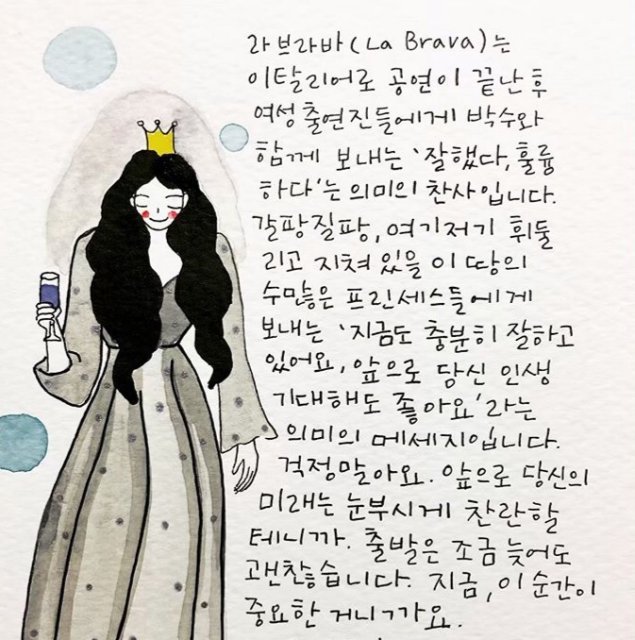 라브라바(La Brava)는
이탈리어로 공연이 끝난 후
여성 출연진들에게 박수와
함께 보내는 '잘했다, 훌륭
하다'는 의미의 찬사입니다.
갈팡질팡, 여기저기 휘둘
리고 지쳐 있을 이 땅의
수많은 프린세스들에게
보내는 '지금도 충분히 잘하고
있어요, 앞으로 당신 인생
기대해도 좋아요'라는
의미의 메세지입니다.
걱정말아요. 앞으로 당신의
미래는 눈부시게 찬란할
테니까. 출발은 조금 늦어도
괜찮습니다. 지금, 이 순간이
중요한 거니까요.